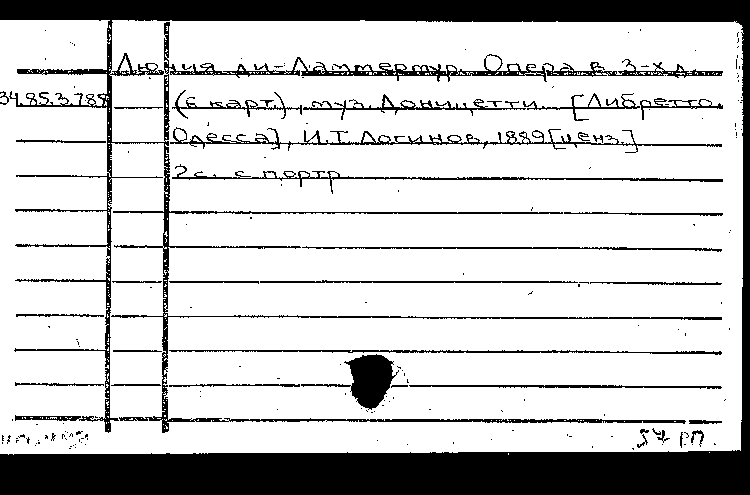 Лючия ди-Ламмермур. Опера в 3-х д.
34.85.3.788 (6 карт.), муз. Доницетти. [Либретто.
Одесса], И.Т. Логинов, 1889 [ценз.]
2 с. с портр
57 РП.